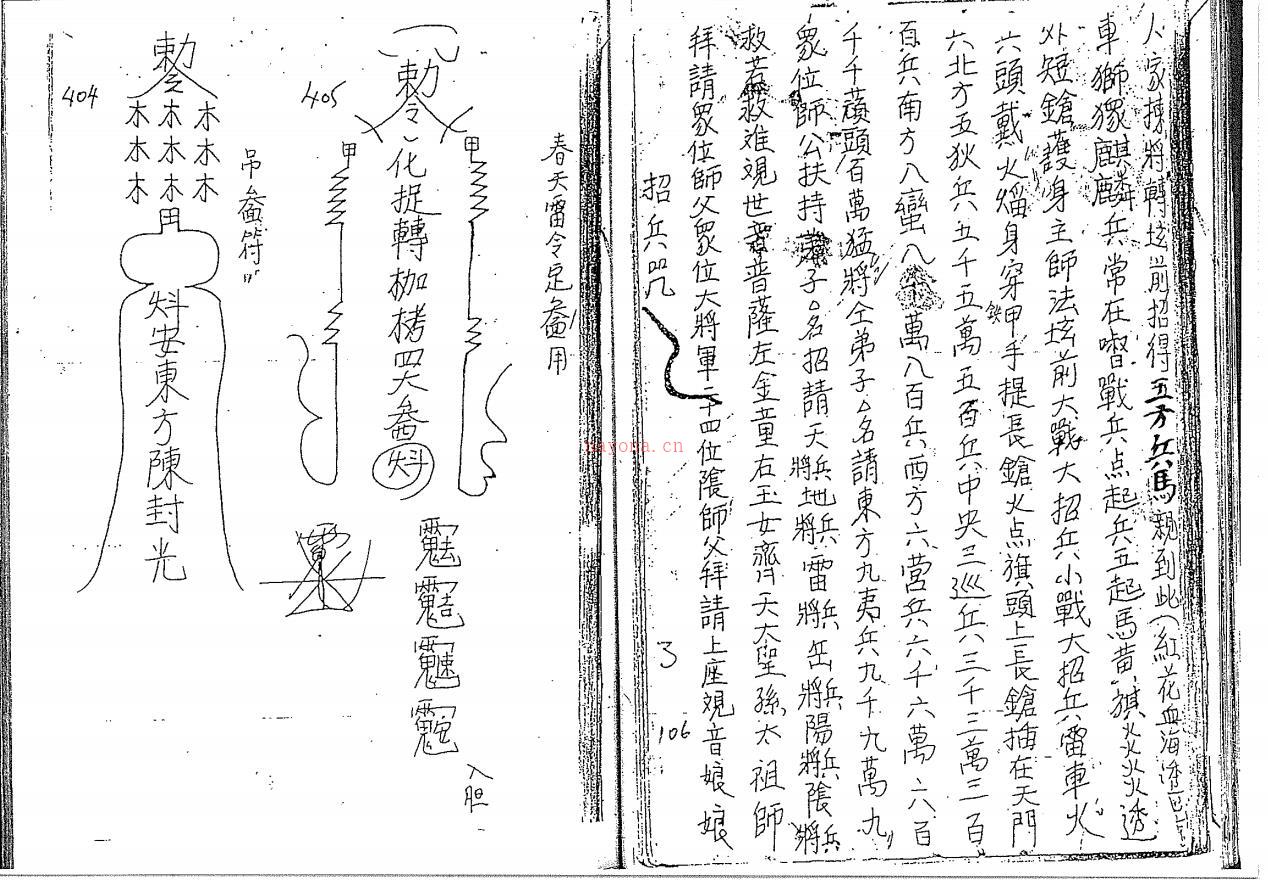 招兵咒
3
106
拜請眾位師父眾位大將軍二十四位陰師父拜請上座觀音娘娘
救苦救难観世音普薩左金童右玉女齊天大聖孫太祖師
眾位師公扶持弟子△名招請天兵天將地兵地將雷兵雷將岳兵岳將陽兵陽將陰兵陰將
千千蠻頭百萬猛將仝弟子△名請東方九夷兵九千九萬九
百兵南方八蠻八千萬八百兵西方六营兵六千六萬六百
六北方五狄兵五千五萬五百兵中央三巡兵三千三萬三百
六頭戴火熖身穿鉄甲手提長鎗火点旗頭上長鎗插在天門
外短鎗護身主師法坛前大戰大招兵小戰大招兵雷車火
車獅猴麒麟兵常在嘈戰兵点起兵五起馬黄旗火火火透
人家揀將轉坛前招得五方兵馬親到此(紅花血海
春天雷令定用
405
勅令
化捉轉枷栲四大
甲
甲
入胆
吊符
404
勅令
木木木
木木木
木木木
甲
安東方陳封光
nayona.cn